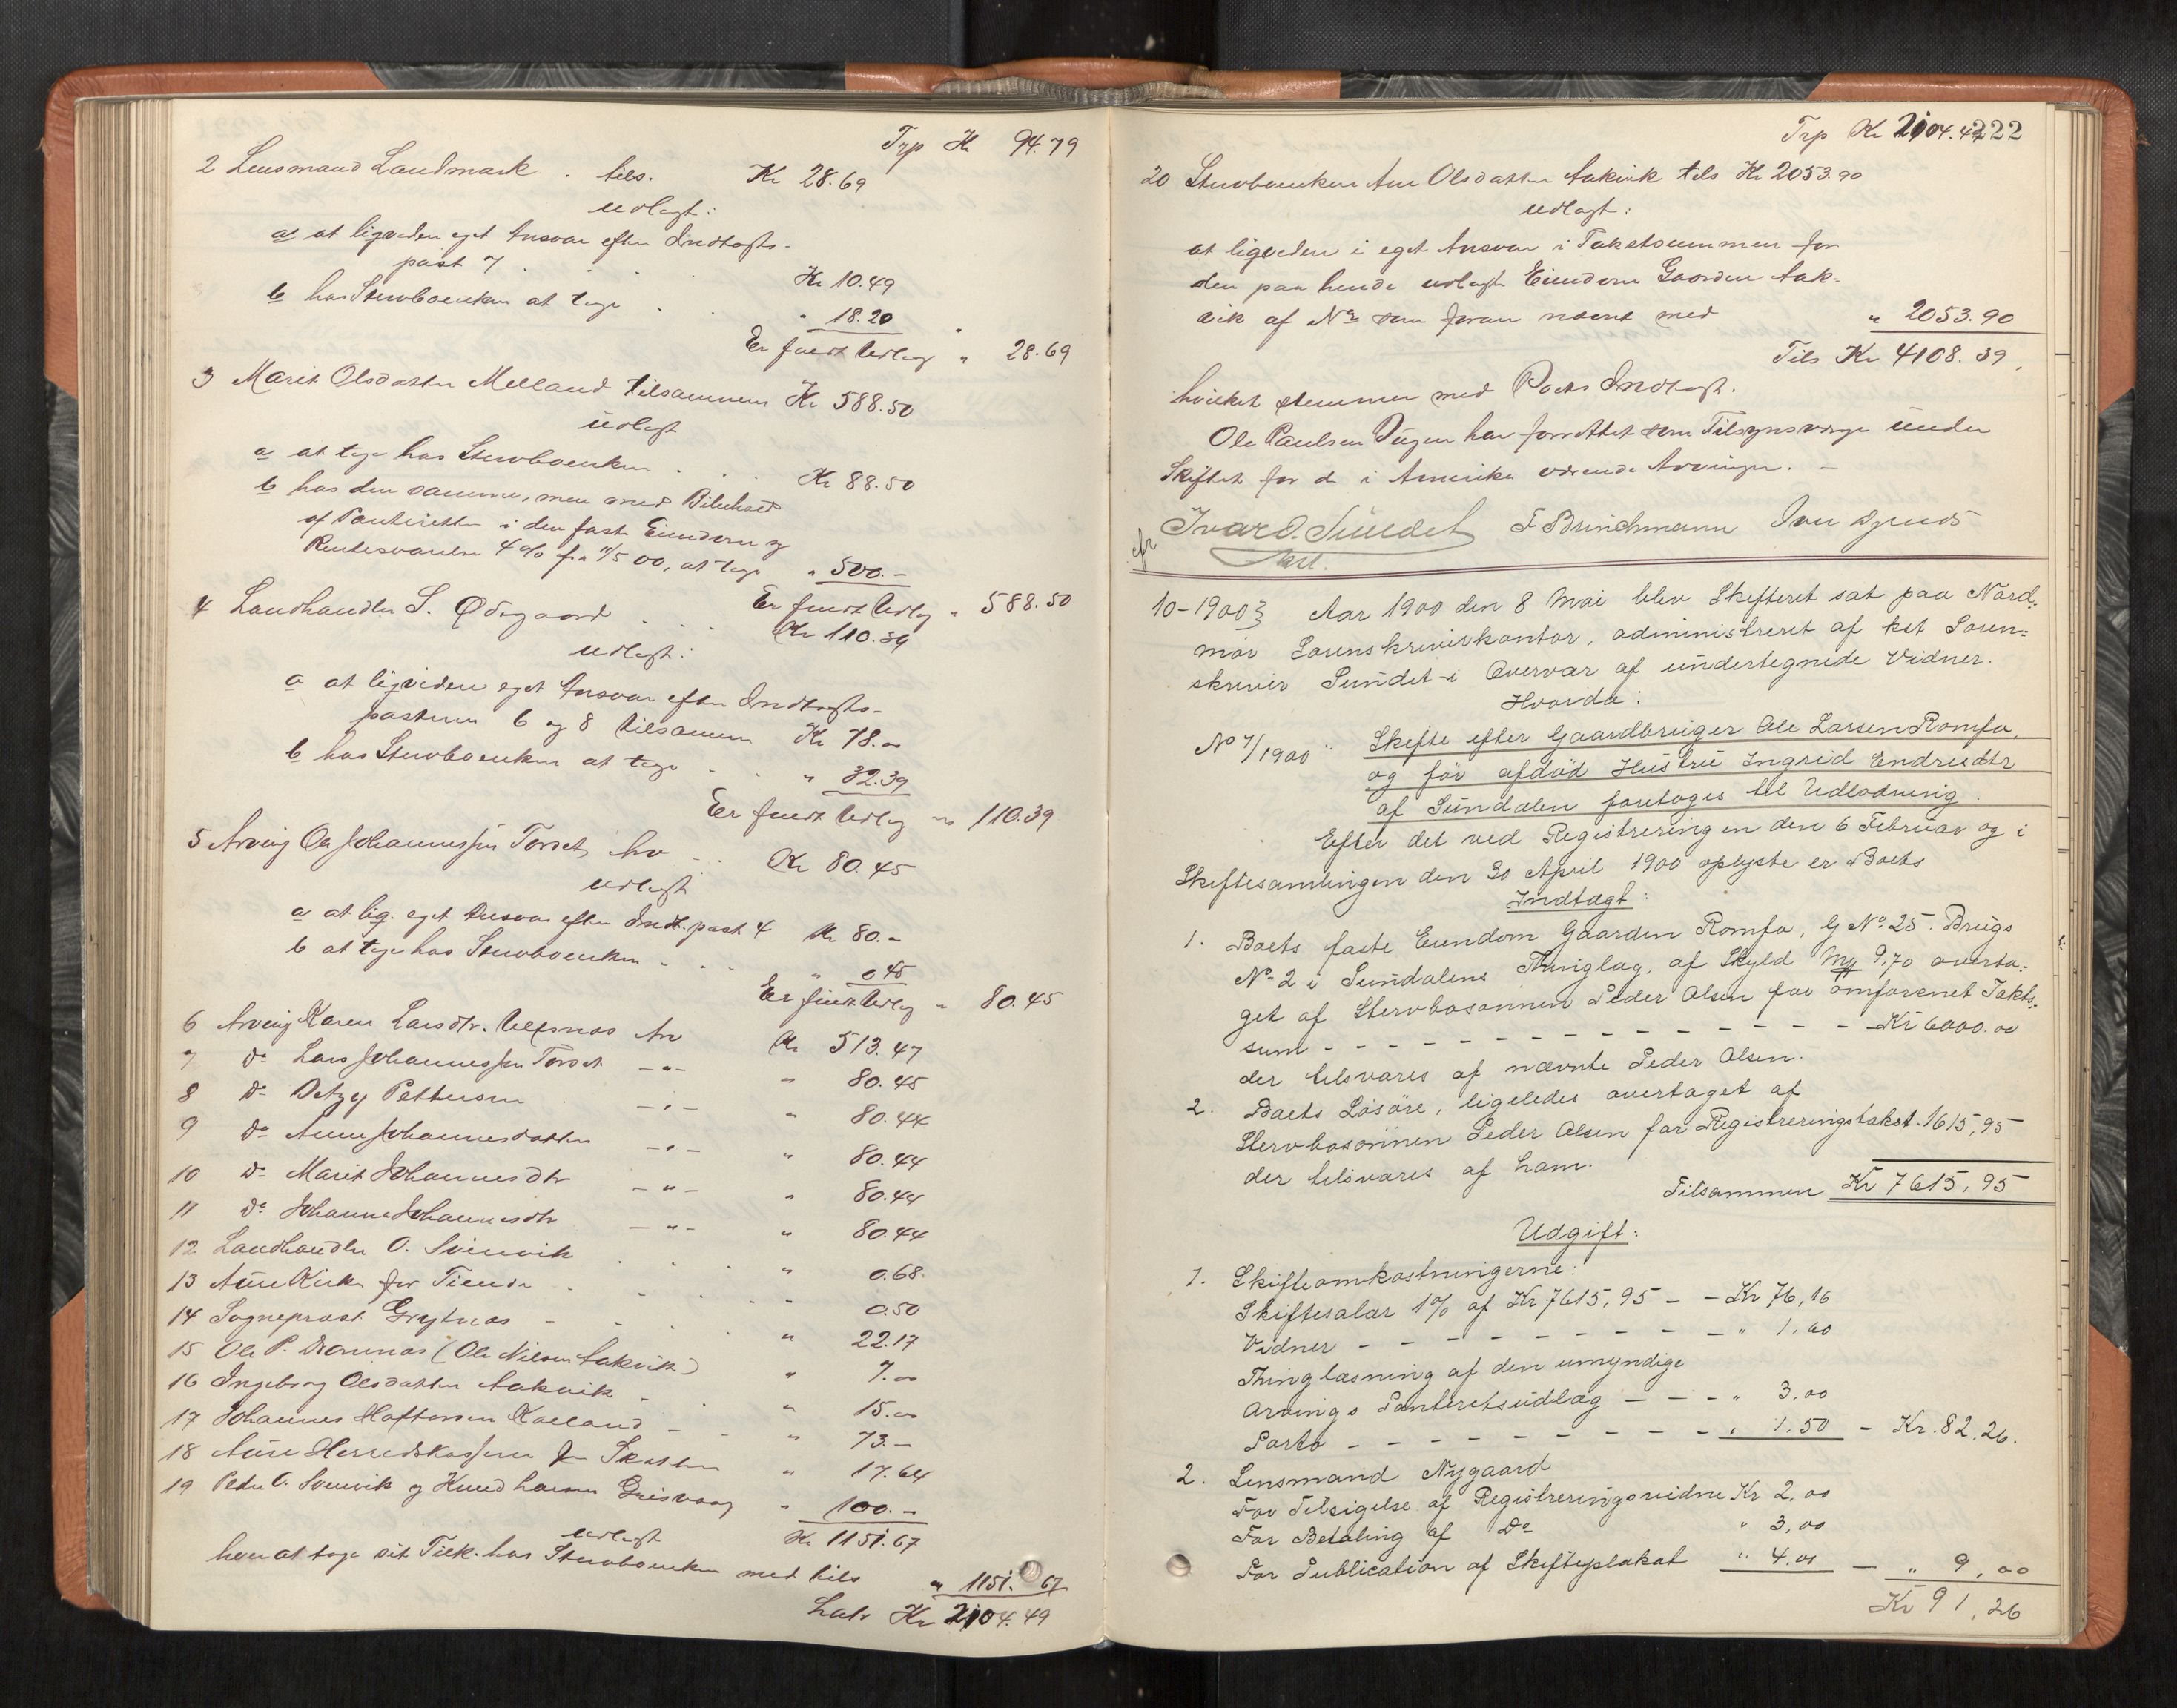 Trp Kr 94.79
2 Lensmand Landmark . tils. Kr 28.69
udlagt:
a at ligvidere eget Ansvar efter Indtægts-
post 7 . . . Kr 10.49
b hos Stervboenken at tage . . " 18.20
Er fuldt Udlæg " 28.69
3 Marit Olsdatter Melland tilsammen Kr 588.50
udlagt
a at tage hos Stervboenken . . . Kr 88.50
b hos den samme, men med Bibehold
af Panteretten i den faste Eiendom og
Rentesvarelse 4 % fra 11/5 00, at tage " 500.-
Er fuldt Udlæg " 588.50
4 Landhandler S. Ødegaard . . . Kr 110.39
udlagt:
a at ligvidere eget Ansvar efter Indtægts-
posterne 6 og 8 tilsammen Kr 78.00
b hos Stervboenken at tage . . " 32.39
Er fuldt Udlæg " 110.39
5 Arving Ole Johannessen Torset, Arv . . Kr 80.45
udlagt
a at liq. eget Ansvar efter Indt. post 4 Kr 80.-
b at tage hos Stervboenken . . . " 0.45
Er fuldt Udlæg " 80.45
6 Arving Karen Larsdtr. Ulfsnæs Arv Kr 513.47
7 Do Lars Johannessen Torset -"- " 80.45
8 Do Petter Pettersen -"- " 80.44
9 Do Anne Johannesdatter -"- " 80.44
10 Do Marit Johannesdtr -"- " 80.44
11 Do Johanna Johannesdtr -"- " 80.44
12 Landhandler O. Svinvik . . . " 0.68.
13 Aure Kirke for Tiende . . . " 0.50
14 Sogneprest Grytnæs - - . " 22.17
15 Ole P. Dromnæs (Ole Nilsen Aakvik) " 7.00
16 Ingeborg Olsdatter Aakvik - . " 15.00
17 Johannes Haftorsen Kalland - - " 73.-
18 Aure Herredskasserer for Skatter " 17.64
19 Peder O. Svinvik og Knud Larsen Grisvaag " 100.-
udlagt Kr 1151.67
hver at tage sit Tilk. hos Stervboenken med tils " 1151.67
Lat. Kr 2104.49
Trp Kr 2104.49 222
20 Stervboenken Ane Olsdatter Aakvik tils Kr 2053.90
udlagt:
at ligvidere i eget Ansvar i Takstsummen for
den paa hende udlagte Eiendom Gaarden Aak-
vik af No som foran nævnt med " 2053.90
Tils Kr 4108.39,
hvilket stemmer med Boets Indtægt.
Ole Paulsen Vaagen har forrettet som Tilsynsværge under
Skiftet for de i Amerika værende Arvinger. -
Ivar O. Sundet F Brinchmann Iver
kst.
10-1900} Aar 1900 den 8 Mai blev Skifteret sat paa Nord-
mør Sorenskriverkontor, administreret af kst Soren-
skriver Sundet i Overvær af undertegnede Vidner.
Hvorda:
No 7/1900 " Skifte efter Gaardbruger Ole Larsen Romfo
og før afdød Hustru Ingrid Endresdtr
af Sundalen foretoges til Udlodning.
Efter det ved Registreringen den 6 Februar og i
Skiftesamlingen den 30 April 1900 oplyste er Boets
Indtægt:
1. Boets faste Eiendom Gaarden Romfo, G No 25. Brugs
No 2 i Sundalens Thinglag, af Skyld My 9.70 overta-
get af Stervbosønnen Peder Olsen for omforenet Takst-
sum - - - - - - - - - - Kr 6000.00
der tilsvares af nævnte Peder Olsen.
2. Boets Løsøre, ligeledes overtaget af
Stervbosønnen Peder Olsen for Registreringstakst. 1615,95
der tilsvares af ham.
Tilsammen Kr 7615,95
Udgift:
1. Skifteomkostningerne:
Skiftesalær 1% af Kr. 7615,95 - - Kr 76,16
Vidner - - - - - - - - - " 1.60
Thinglæsning af den umyndige
Arvings Panteretsudlæg - - - " 3,00
Porto - - - - - - - - - " 1.50 - Kr. 82,26.
2. Lensmand Nygaard
For Tilsigelse af Registreringsvidne Kr 2,00
For Betaling af Do " 3,00
For Publication af Skifteplakat " 4.00 - " 9,00
Kr 91,26